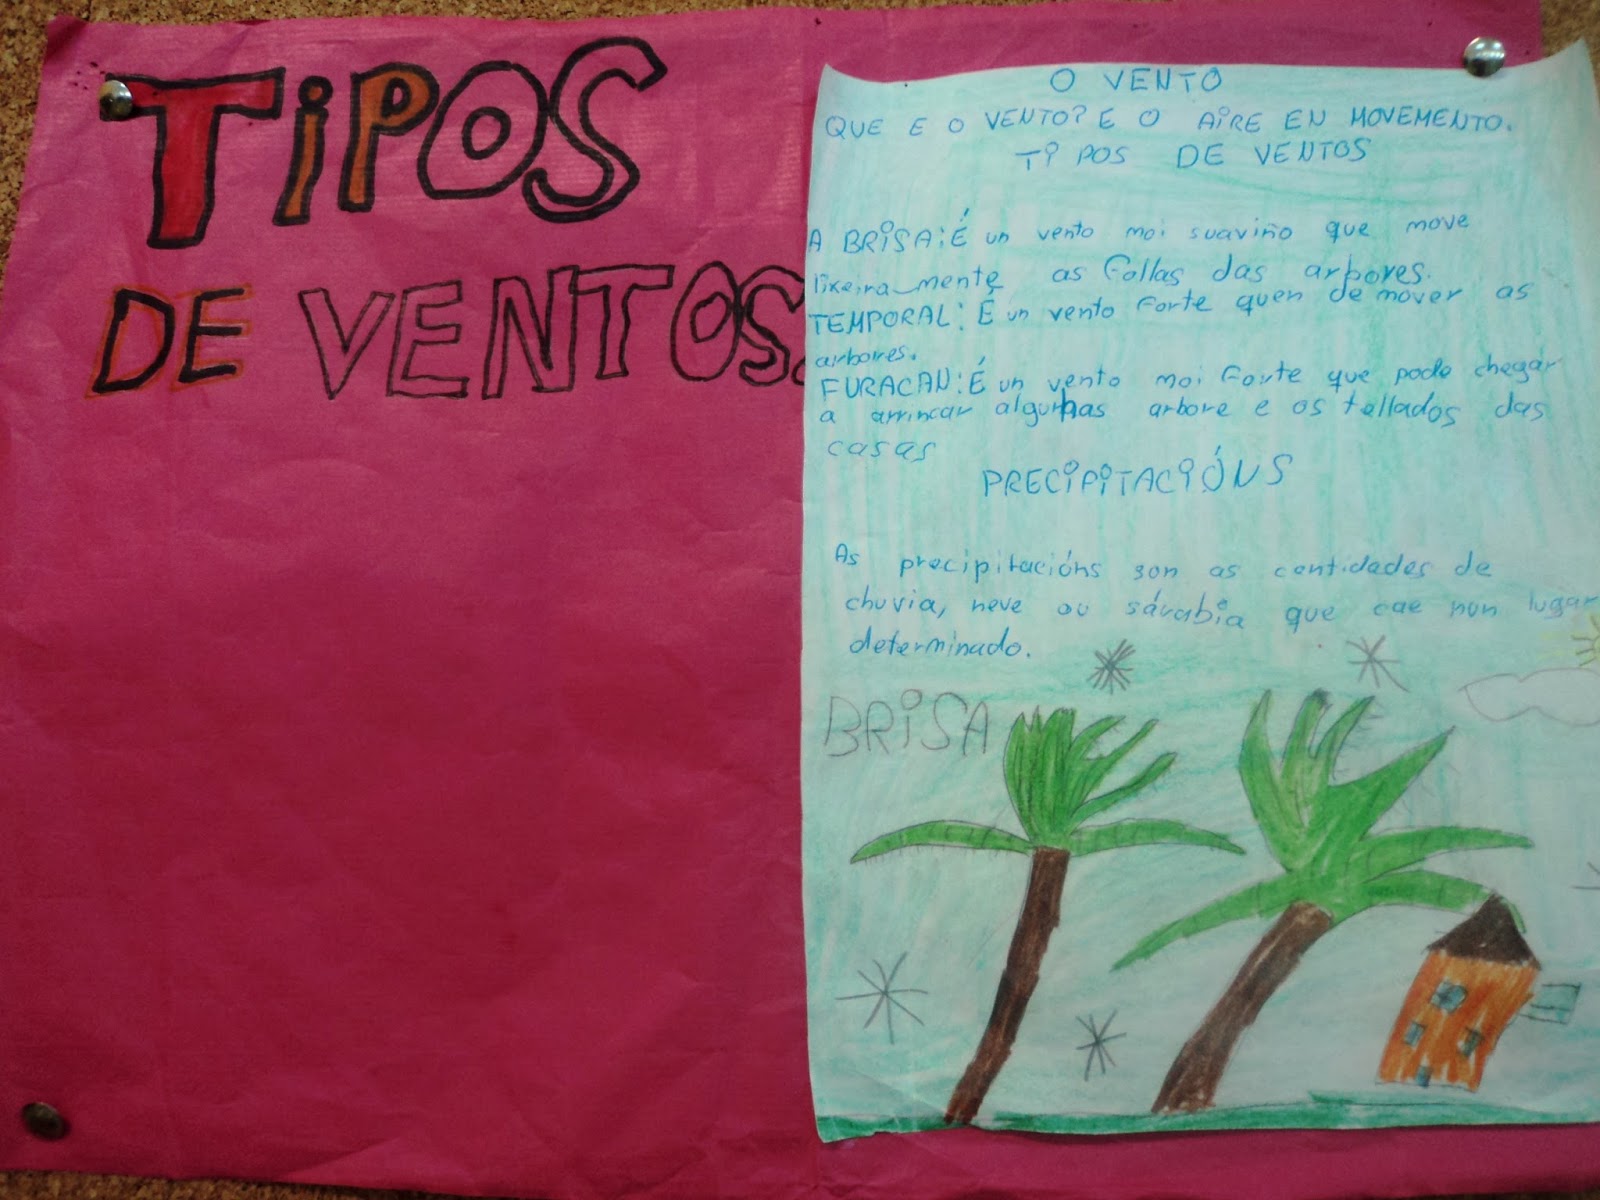 TiPOS
DE VENTOS
O VENTO
QUE E O VENTO? E O AiRE EN MOVEMENTO.
Ti POS DE VENTOS
A BRiSA: É un vento moi suaviño que move
lixeira_mente as Follas das arbores.
TEMPORAL: É un vento Forte quen de mover as
arbores.
FURACAN: É un vento moi Forte que pode chegar
a arrincar algunhas arbore e os tellados das
casas
PRECiPiTACiÓNS
As precipitacións son as cantidades de
chuvia, neve ou sárabia que cae nun lugar
determinado.
BRiSA